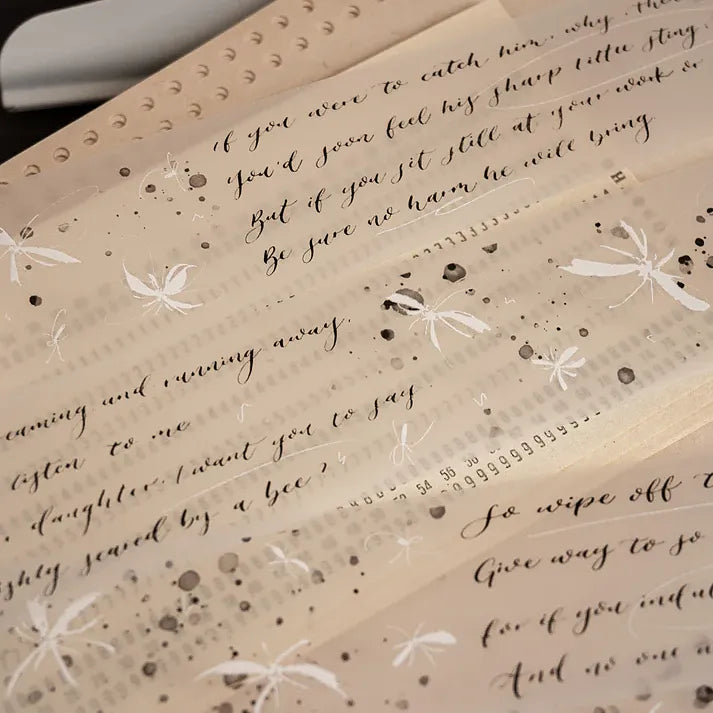 If you were to catch him, why, the
You'd soon feel his sharp little sting,
But if you sit still at your work or
Be sure no harm he will bring.
H
eaming and running away.
listen to me
daughter, I want you to say
ightly scared by a bee?
54 56 58
999999999999
So wipe off t
Give way to so
for if you indul
And no one a